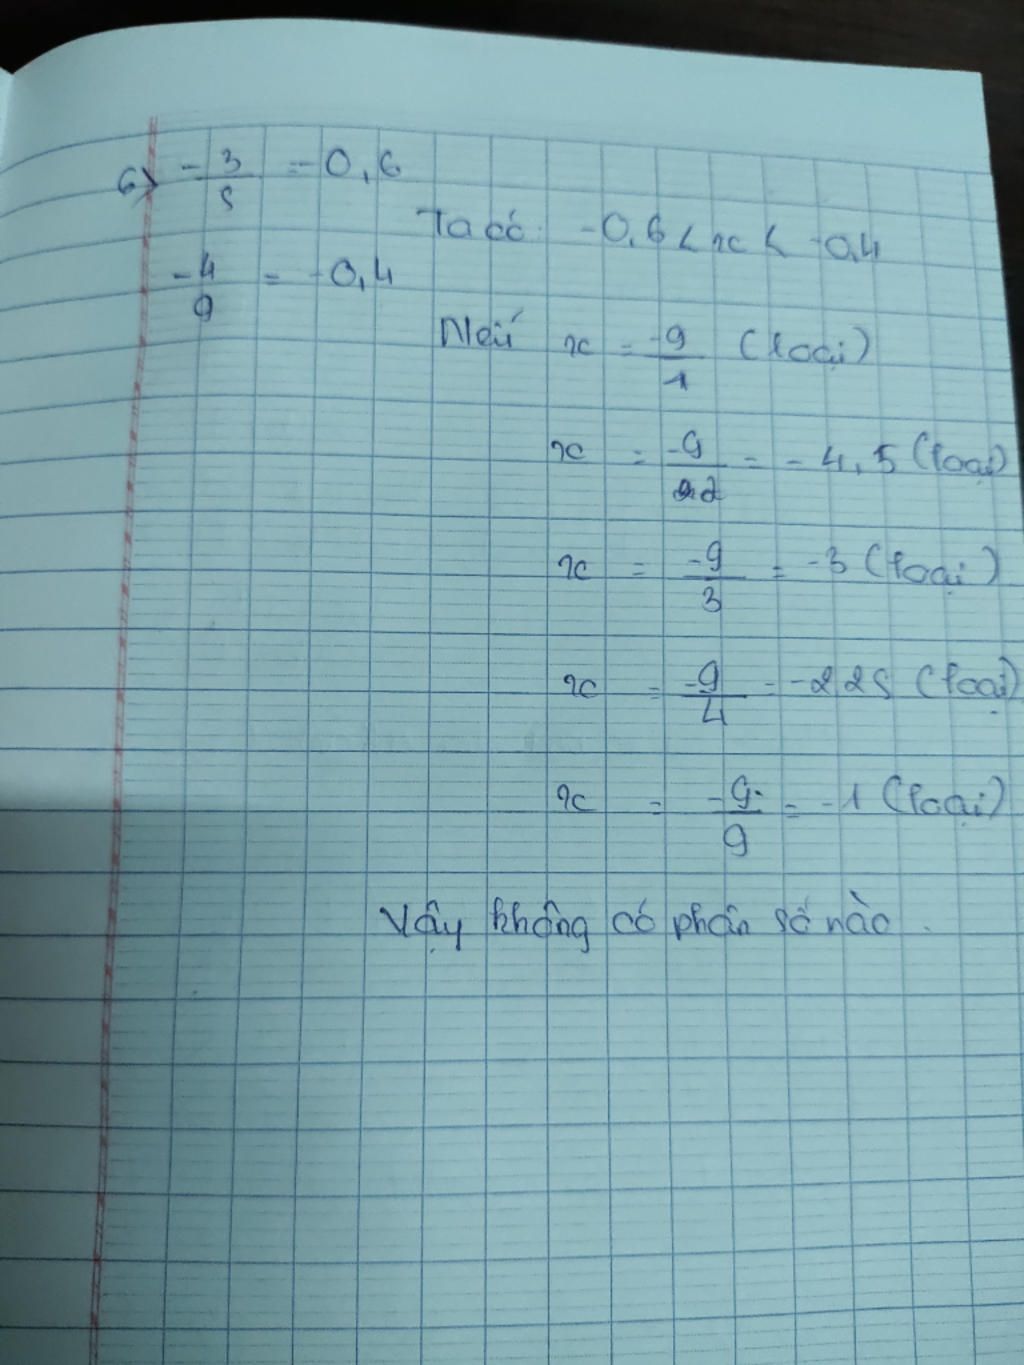 6) -3/5 = -0,6
Ta có: -0,6 < x < -0,4
-4/9 = -0,4
Nếu x = -9/1 (loại)
x = -9/2 = -4,5 (loại)
x = -9/3 = -3 (loại)
x = -9/4 = -2 25 (loại)
x = -9/9 = -1 (loại)
Vậy không có phân số nào.